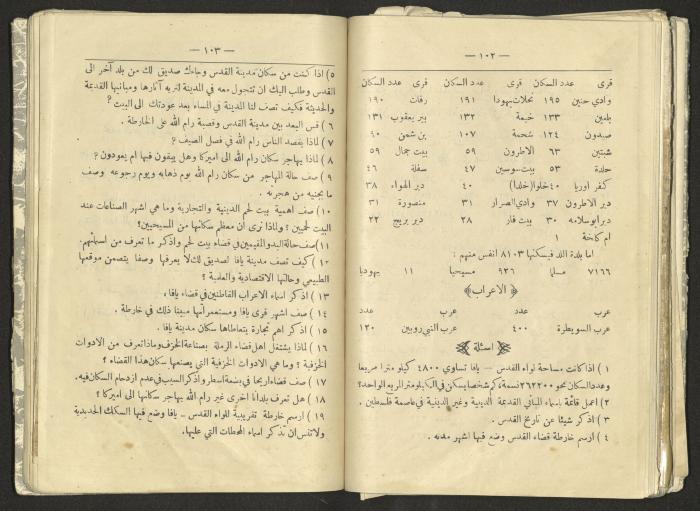 — ١٠٢ —
قرى عدد السكان قرى عدد السكان قرى عدد السكان
وادي حنين ١٩٥ نحلات يهودا ١٩١ رفات ١٩٠
يلمين ١٣٣ خيمة ١٣٢ بير يعقوب ١٣١
صيدون ١٢٤ شحمة ١٠٧ بن شمن ٩٠
شبتين ٦٣ الاطرون ٥٩ بيت جمال ٥٩
حلدة ٥٣ بيت سوسين ٤٧ سفلة ٤٦
كفر اوريا ٤٠ خلوا (خلدا) ٤٠ دير الهواء ٣٨
دير الاطرون ٣٧ وادي الصرار ٣١ منصورة ٣١
دير ابو سلامه ٣٠ بيت فار ٢٨ دير بريج ٢٢
ام كلخة ١
اما بلدة اللد فيسكنها ٨١٠٣ انفس منهم :
٧١٦٦ مسلما ٩٢٦ مسيحيا ١١ يهوديا
﴿الاعراب﴾
عرب عدد عرب عدد
عرب السويطرة ٤٠٠ عرب النبي روبين ١٢٠
اسئلة
١ ) اذا كانت مساحة لواء القدس – يافا تساوي ٤٨٠٠ كيلو مترا مربعا
وعدد السكان نحو ٢٦٢٢٠٠ نسمة فكم شخصا يسكن في الكيلومتر المربع الواحد؟
٢) اعمل قائمة باسماء المباني القديمة الدينية وغير الدينية في عاصمة فلسطين .
٣ ) اذكر شيئا عن تاريخ القدس .
٤ ) ارسم خارطة قضاء القدس وضع فيها اشهر مدنه .
— ١٠٣ —
٥) اذا كنت من سكان مدينة القدس وجاءك صديق لك من بلد آخر الى
القدس وطلب اليك ان تتجول معه في المدينة لتريه آثارها ومبانيها القديمة
والحديثة فكيف تصف لنا المدينة في المساء بعد عودتك الى البيت؟
٦ ) قس البعد بين مدينة القدس وقصبة رام الله على الخارطة .
٧ ) لماذا يقصد الناس رام الله في فصل الصيف ؟
٨ ) لماذا يهاجر سكان رام الله الى اميركا وهل يبقون فيها ام يعودون؟
٩ ) صف حالة المهاجر من سكان رام الله يوم ذهابه ويوم رجوعه وصف
ما يجنيه من هجرته .
١٠ ) صف اهمية بيت لحم الدينية والتجارية وما هي اشهر الصناعات عند
البيت لحميين ؟ ولماذا نرى أن معظم سكانها من المسيحيين؟
١١ )صف حالة البدو المقيمين في قضاء بيت لحم واذكر ما تعرف من اسمائهم.
١٢ ) كيف تصف مدينة يافا لصديق لك لا يعرفها وصفا يتضمن موقعها
الطبيعي وحالتها الاقتصادية والعلمية ؟
١٣ ) اذكر اسماء الاعراب القاطنين في قضاء يافا.
١٤ ) صف اشهر قرى يافا ومستعمراتها مبينا ذلك في خارطة .
١٥ ) اذكر اهم تجارة يتعاطاها سكان مدينة يافا .
١٦ ) لماذا يشتغل اهل قضاء الرملة بصناعة الخزف وماذا تعرف من الادوات
الخزفية ؟ وما هي الادوات الخزفية التي يصنعها سكان هذا القضاء ؟
١٧ ) صف قضاء اريحا في بضعة اسطر واذكر السبب في عدم ازدحام السكان فيه.
١٨ ) هل تعرف بلدانا اخرى غير رام الله يهاجر سكانها الى اميركا ؟
١٩ ) ارسم خارطة تقريبية للواء القدس – يافا وضع فيها السكك الحديدية
ولا تنس ان تذكر اسماء المحطات التي عليها.